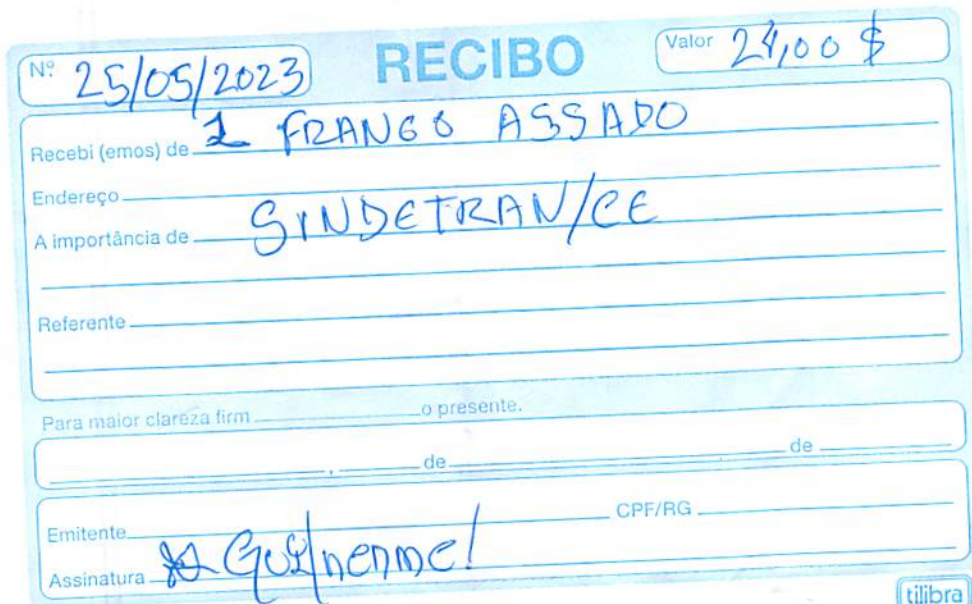 Nº 25/05/2023 RECIBO Valor 24,00 $
Recebi (emos) de 1 FRANGO ASSADO
Endereço
A importância de SINDETRAN/CE
Referente
Para maior clareza firm o presente.
, de de
Emitente CPF/RG
Assinatura Guilherme!
tilibra